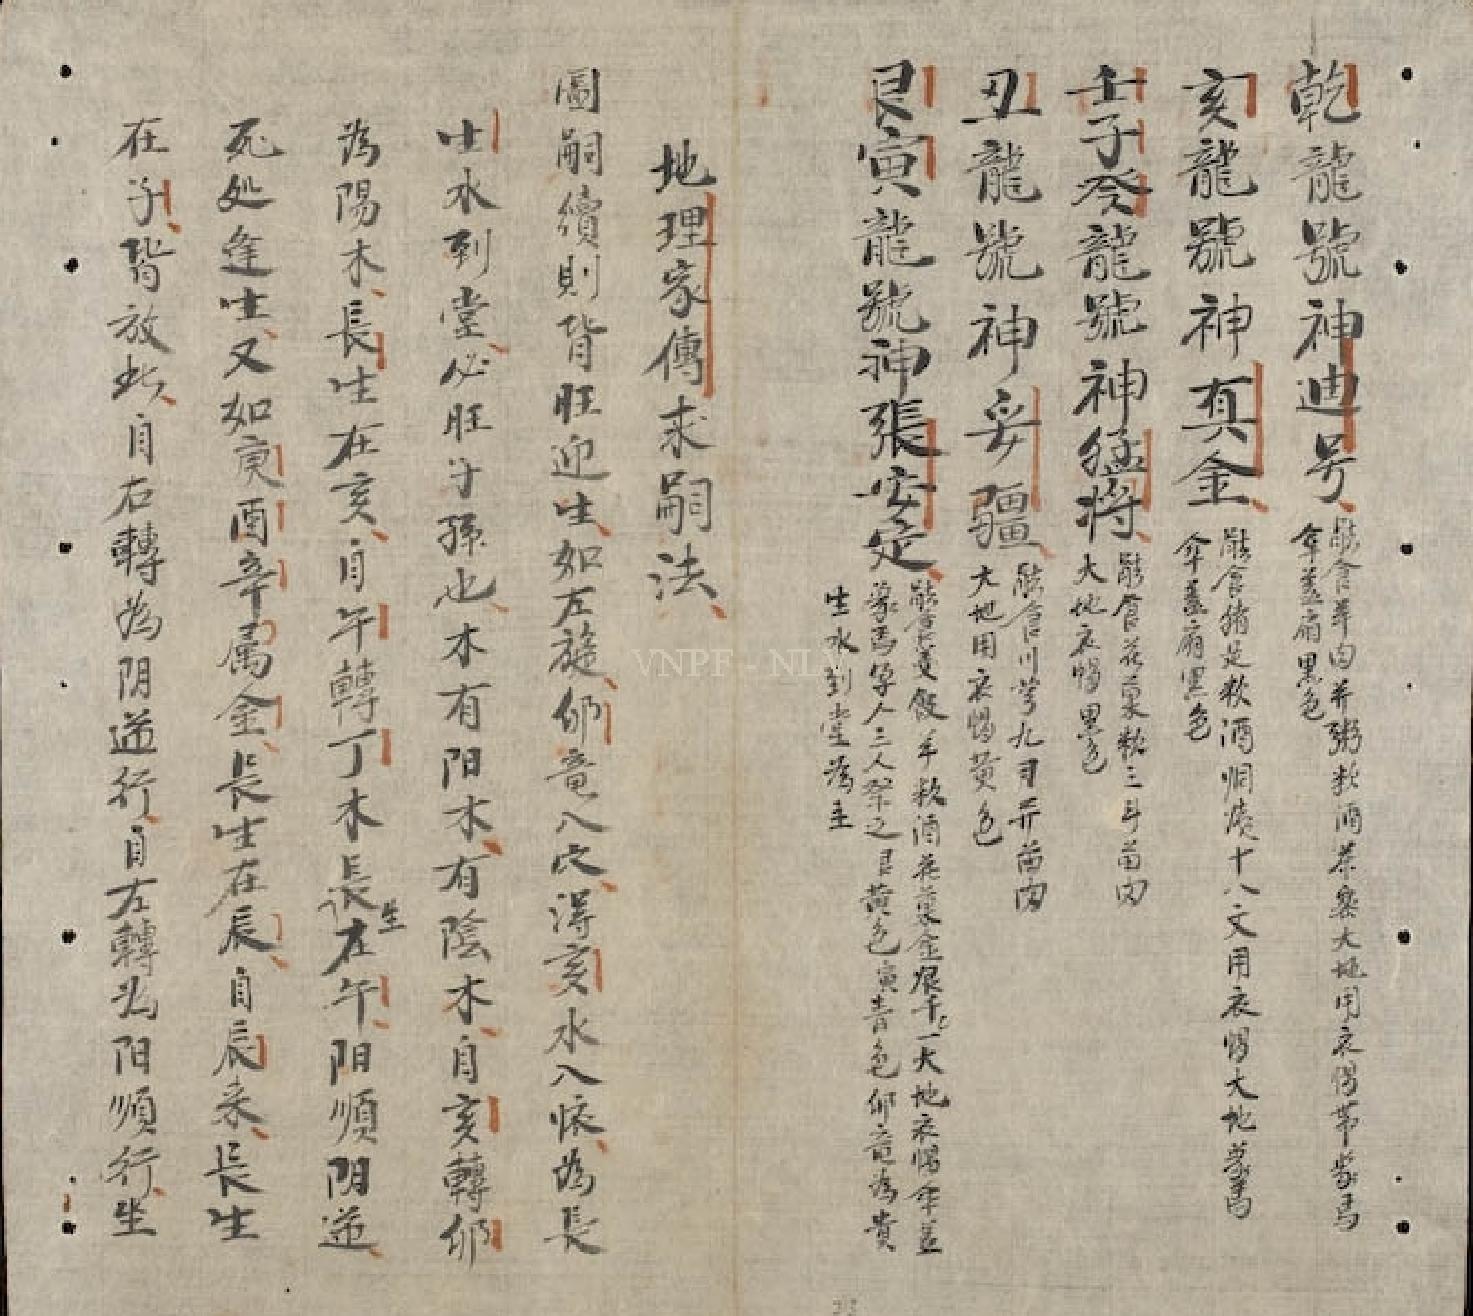 乾龍號神迪号
能食羊肉并粥粓酒茶案大地用衣惕帶象馬
傘盖扇黑色
亥龍號神真金
能食猪足粓酒炯湊十八文用衣惕大地象馬
傘盖扇黑色
壬子癸龍號神猛将
能食花菓粓三斗茁肉
大地衣惕黑色
丑龍號神妥疆
能食川芎九司并茁肉
大地用衣惕黄色
艮寅龍號神張安定
能食美飯羊粓酒花菓金銀千一大地衣惕傘盖
象馬字人三人祭之艮黄色寅青色卯竜為貴
生水到堂為主
地理家傳求嗣法
圖嗣續則背旺迎生如左旋卯竜入穴得亥水入懐為長
生水到堂必旺子孫也木有阳木有陰木自亥轉卯
為陽木長生在亥自午轉丁木長生在午阳順阴逆
死处逢生又如庚酉辛属金長生在辰自辰来長生
在子背放此自右轉為阴逆行自左轉為阳順行坐
VNPF - NL